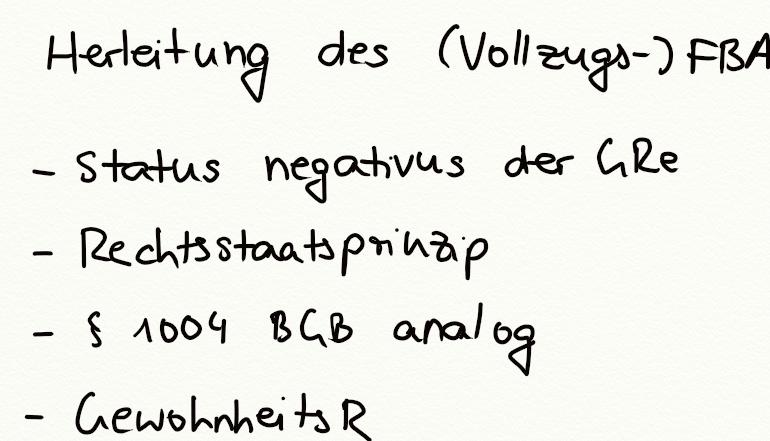 Herleitung des (Vollzugs-) FBA
- Status negativus der GRe
- Rechtsstaatsprinzip
- § 1004 BGB analog
- GewohnheitsR